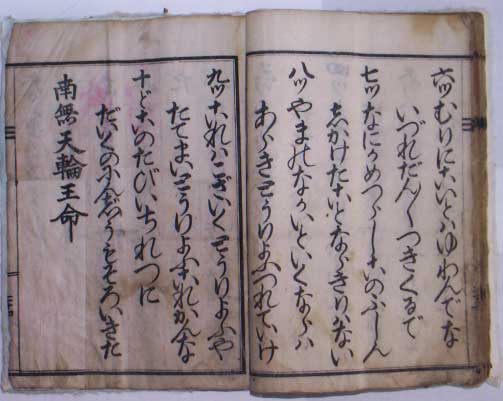 六ツむりにこいとハゆわんでな
いづれだん〳〵つきくるで
七ツなにかめつらしこのふしん
しかけたことならきりハない
八ツやまのなかいといくならハ
あらきとうりよふつれていけ
九ツこれハこざいくとうりよふや
たてまいとうりよふこれかんな
十どこのたびいちれつに
だいくのにんぢうもそろいきた
南無天輪王命